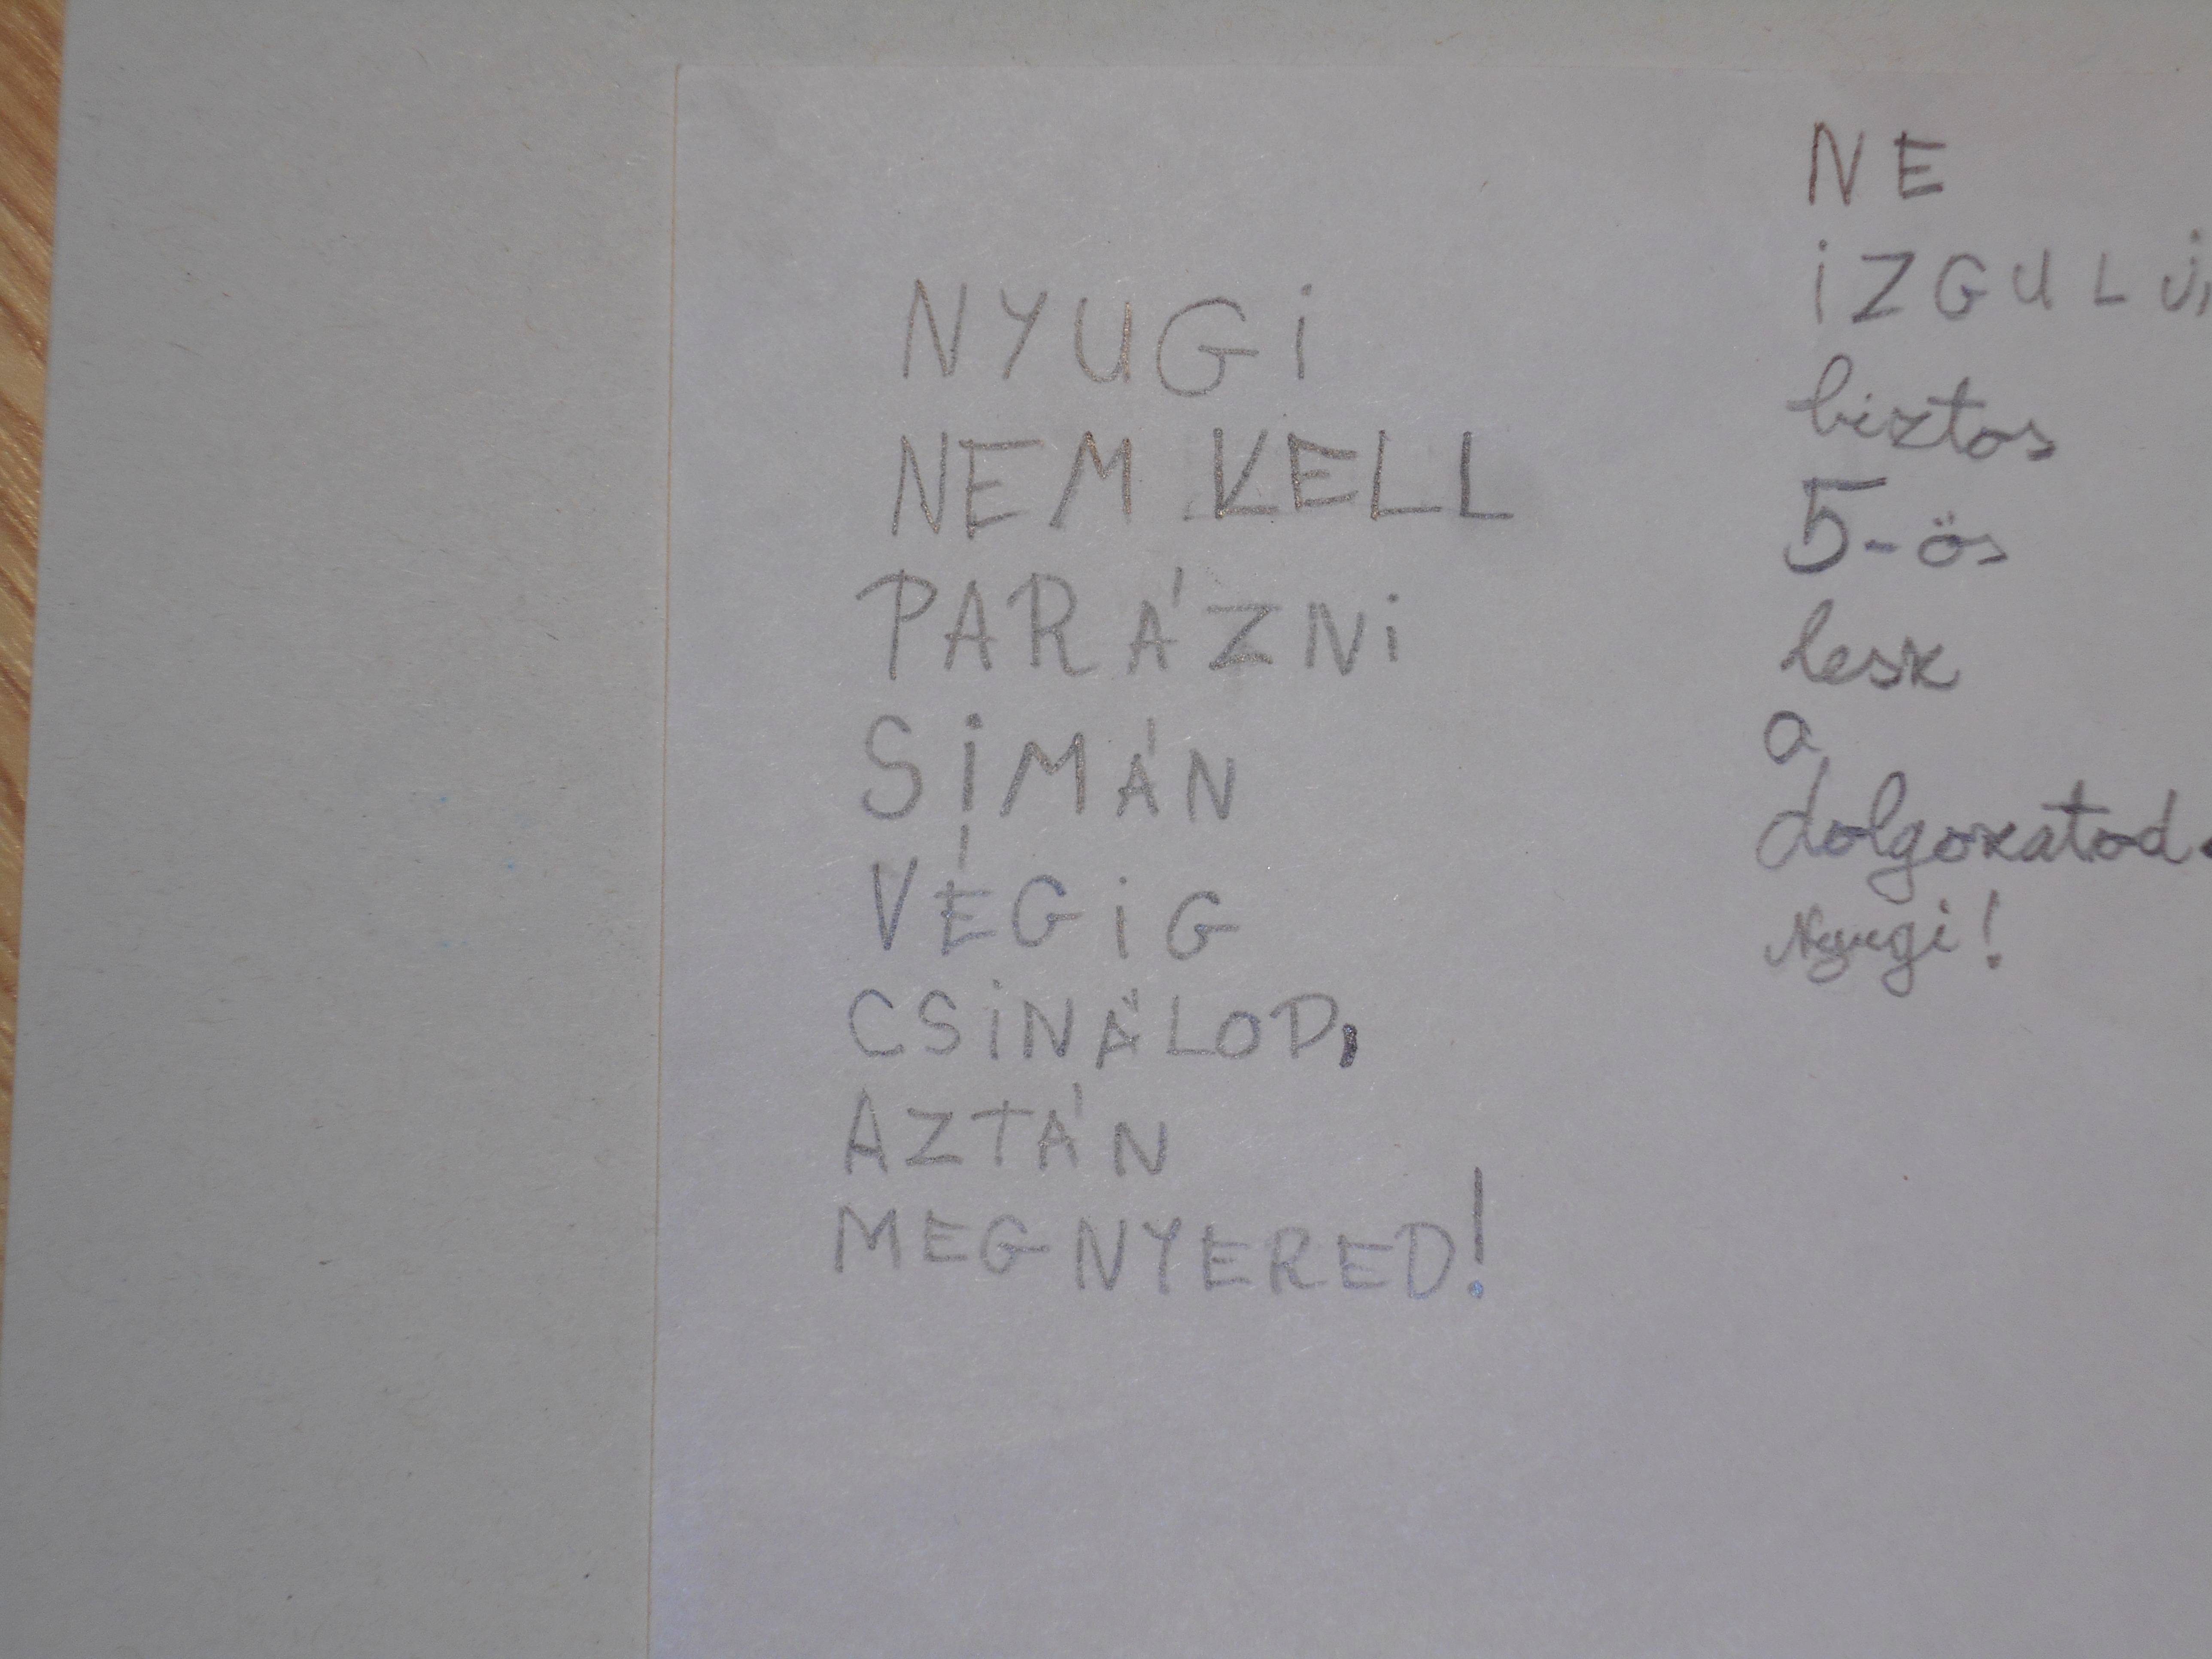 NYUGi
NEM KELL
PARÁZNi
SiMÁN
VÉGiG
CSiNÁLOD,
AZTÁN
MEGNYERED!
NE
iZGULJ,
biztos
5-ös
lesz
a
dolgozatod.
Nyugi!